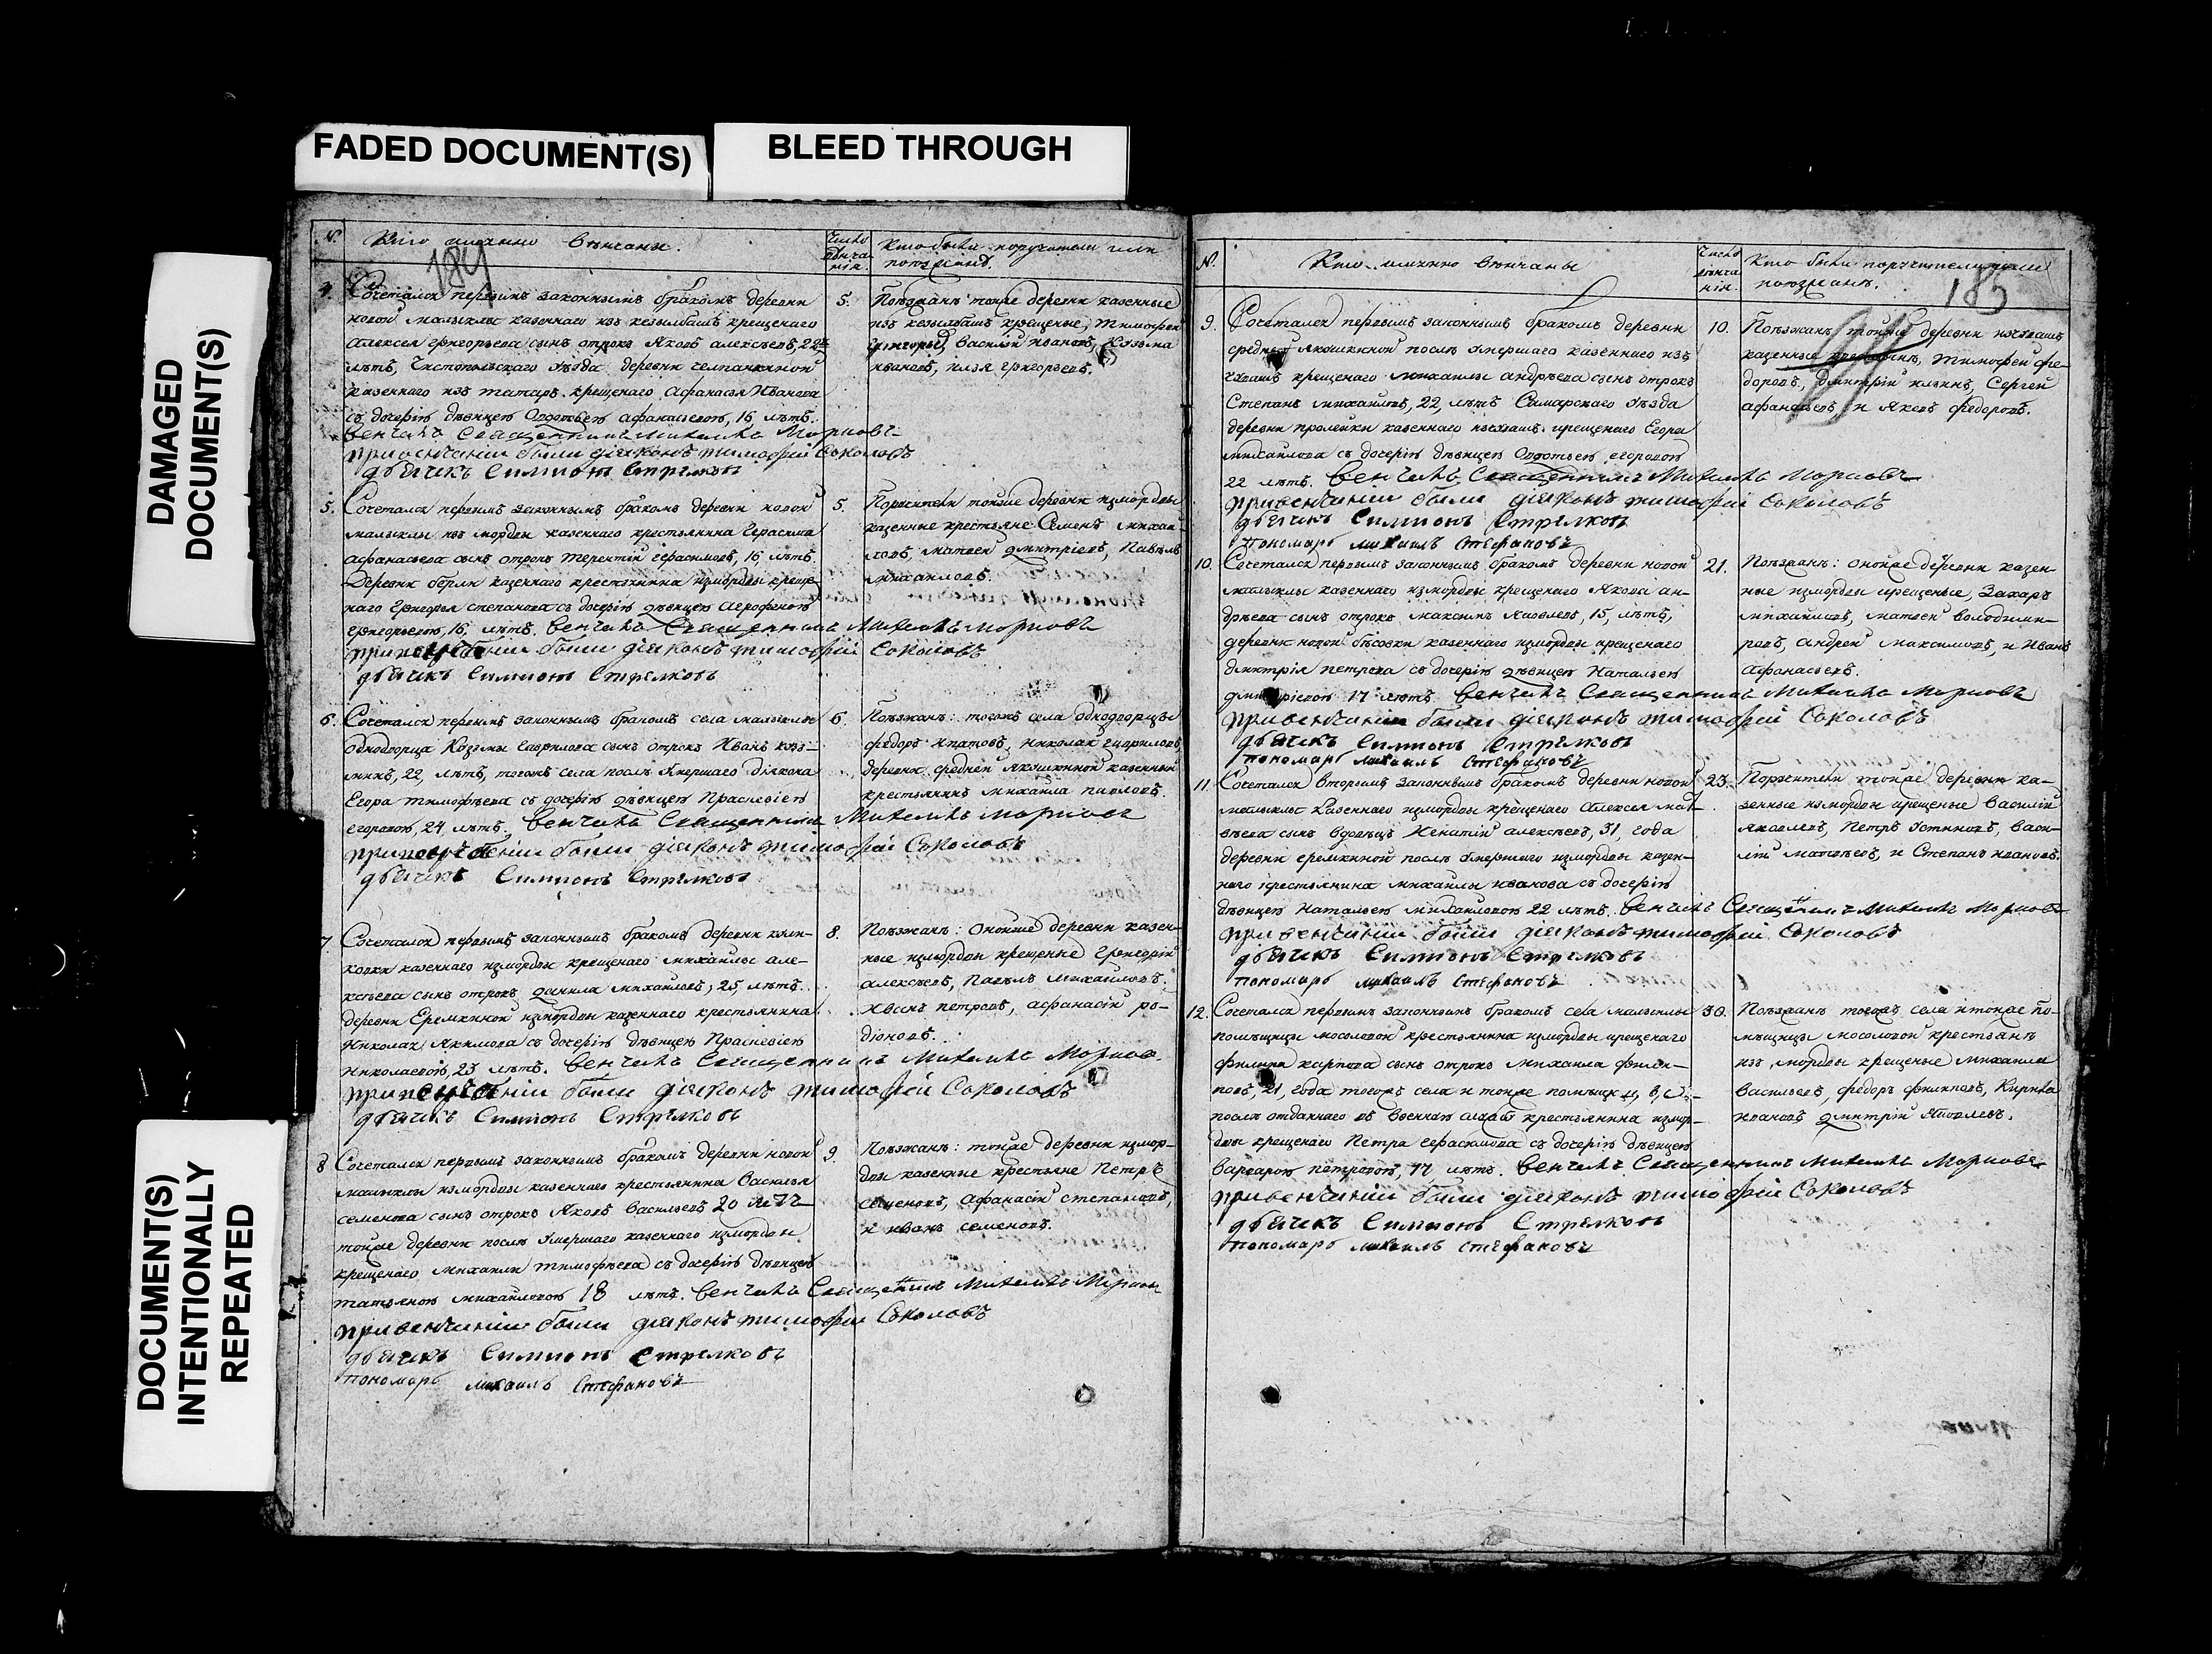 FADED DOCUMENT(S)
BLEED THROUGH
DAMAGED
DOCUMENT(S)
DOCUMENT(S)
INTENTIONALLY
REPEATED
№.
Кто имянно венчаны.
Число
венча
нія.
Кто были поручители или
поѣзжанѣ.
184
4.
Сочетался первымъ законнымъ бракомъ деревни
новой малыклы казеннаго изъ кезылбашъ крещенаго
алексея григорьева сынъ отрокъ яковъ алексѣевъ, 22
лѣтъ, Чистопольскаго уѣзда деревни
казеннаго изъ татаръ крещенаго Афанасья Иванова
съ дочерію дѣвицею Федотьею афанасьевою, 16 лѣтъ.
венчалъ Священникъ Михаилъ
при венчаніи были діяконъ тимофѣй Соколовъ
дьячекъ Симионъ Стрелковъ
5.
Поѣзжанѣ тойже деревни казенные
изъ кезылбашъ крещеные, тимофеи
григорьевъ, василіи ивановъ, Кузьма
ивановъ, илья григорьевъ.
5.
Сочетался первымъ законнымъ бракомъ деревни новой
малыклы изъ мордвы казеннаго крестьянина Герасима
афанасьева сынъ отрокъ терентіи герасимовъ, 16, лѣтъ.
Деревни казеннаго крестьянина измордвы креще-
наго григорья степанова съ дочерію дѣвицею
григорьевою, 16, лѣтъ. венчалъ Священникъ Михаилъ
при венчаніи были діяконъ тимофѣй Соколовъ
дьячекъ Симионъ Стрелковъ
5.
Поручители тойже деревни измордвы
казенные крестьяне Семенъ михаи-
ловъ, матвеи дмитріевъ, Павелъ
михаиловъ.
6.
Сочетался первымъ законнымъ бракомъ села малыклы
однодворца Козьмы гаврилова сынъ отрокъ Иванъ козь-
минъ, 22, лѣтъ, тогожъ села послѣ умершаго діякона
Егора тимофѣева съ дочерію дѣвицею Прасковіею
егоровою, 24 лѣтъ. венчалъ Священникъ Михаилъ
при венчаніи были діяконъ тимофѣй Соколовъ
дьячекъ Симионъ Стрелковъ
6.
Поѣзжанѣ: тогожъ села однодворцы
федоръ ипатовъ, николаи гавриловъ,
деревни средней якошкиной казенный
крестьянинъ михаила павловъ.
7.
Сочетался первымъ законнымъ бракомъ деревни
казеннаго измордвы крещенаго михаилы але-
ксѣева сынъ отрокъ данила михаиловъ, 25, лѣтъ.
деревни Еремкиной измордвы казеннаго крестьянина
николая якимова съ дочерію дѣвицею Прасковіею
николаевою, 23 лѣтъ. венчалъ Священникъ Михаилъ
при венчаніи были діяконъ тимофѣй Соколовъ
дьячекъ Симионъ Стрелковъ
8.
Поѣзжанѣ: оной же деревни казен-
ные измордвы крещеные григоріи
алексѣевъ, Павелъ михаиловъ.
иванъ петровъ, афанасіи ро-
діоновъ.
8
Сочетался первымъ законнымъ бракомъ деревни новой
малыклы измордвы казеннаго крестьянина василья
семенова сынъ отрокъ яковъ васильевъ 20 летъ
тойже деревни послѣ умершаго казеннаго измордвы
крещенаго михаилы тимофѣева съ дочерію дѣвицею
татьяною михаиловою 18 лѣтъ. венчалъ Священникъ Михаилъ
при венчаніи были діяконъ тимофѣй Соколовъ
дьячекъ Симионъ Стрелковъ
пономарь михаилъ Стефановъ
9.
Поѣзжанѣ: тойже деревни измор-
двы казенные крестьяне Петръ
семеновъ, афанасіи степановъ,
и иванъ семеновъ.
№.
Кто имянно венчаны
Число
венча
нія.
Кто были поручители или
поѣзжанѣ.
185
9.
Сочетался первымъ законнымъ бракомъ деревни
средней якошкиной послѣ умершаго казеннаго изъ
чувашъ крещенаго михаилы андрѣева сынъ отрокъ
Степанъ михаиловъ, 22, лѣтъ Самарскаго уѣзда
деревни казеннаго изчувашъ крещенаго Егора
михаилова съ дочерію дѣвицею Федотьею егоровою
22 лѣтъ. венчалъ Священникъ Михаилъ
при венчаніи были діяконъ тимофѣй Соколовъ
дьячекъ Симионъ Стрелковъ
пономарь михаилъ Стефановъ
10.
Поѣзжанѣ тойже деревни изчувашъ
казенные тимофеи фе-
доровъ, дмитріи ильинъ, Сергеи
афанасьевъ и яковъ федоровъ.
10.
Сочетался первымъ законнымъ бракомъ деревни новой
малыклы казеннаго измордвы крещенаго якова ан-
дрѣева сынъ отрокъ максимъ яковлевъ, 15, лѣтъ,
деревни новой бѣсовки казеннаго измордвы крещенаго
дмитрія петрова съ дочерію дѣвицею Натальею
дмитріевою 17 лѣтъ венчалъ Священникъ Михаилъ
при венчаніи были діяконъ тимофѣй Соколовъ
дьячекъ Симионъ Стрелковъ
пономарь михаилъ Стефановъ
21.
Поѣзжанѣ: оной же деревни казен-
ные измордвы крещеные, Захаръ
михаиловъ, матвеи володими-
ровъ, андреи максимовъ, и иванъ
афанасьевъ.
11
Сочетался вторымъ законнымъ бракомъ деревни новой
малыклы казеннаго измордвы крещенаго алексея мат-
вѣева сынъ вдовецъ Игнатіи алексѣевъ, 31, года
деревни еремкиной послѣ умершаго измордвы казен-
наго крестьянина михаилы иванова съ дочерію
дѣвицею Натальею михаиловою 22 лѣтъ. венчалъ Священникъ Михаилъ
при венчаніи были діяконъ тимофѣй Соколовъ
дьячекъ Симионъ Стрелковъ
пономарь михаилъ Стефановъ
23.
Поручители тойже деревни ка-
зенные измордвы крещеные василіи
яковлевъ, Петръ Устиновъ, васи-
ліи матвѣевъ, и Степанъ ивановъ.
12.
Сочетался первымъ законнымъ бракомъ села малыклы
помѣщицы мосоловой крестьянина измордвы крещенаго
филипа карпова сынъ отрокъ михаила фили-
повъ, 21, года тогожъ села и тойже помѣщицы
послѣ отданнаго въ военную службу крестьянина измор-
двы крещенаго Петра герасимова съ дочерію дѣвицею
варварою петровою, 17 лѣтъ. венчалъ Священникъ Михаилъ
при венчаніи были діяконъ тимофѣй Соколовъ
дьячекъ Симионъ Стрелковъ
пономарь михаилъ Стефановъ
30.
Поѣзжанѣ тогожъ села итойже по-
мѣщицы мосоловой крестьянѣ
изъ мордвы крещеные михаила
васильевъ, федоръ филиповъ, Кирила
ивановъ дмитріи яковлевъ.